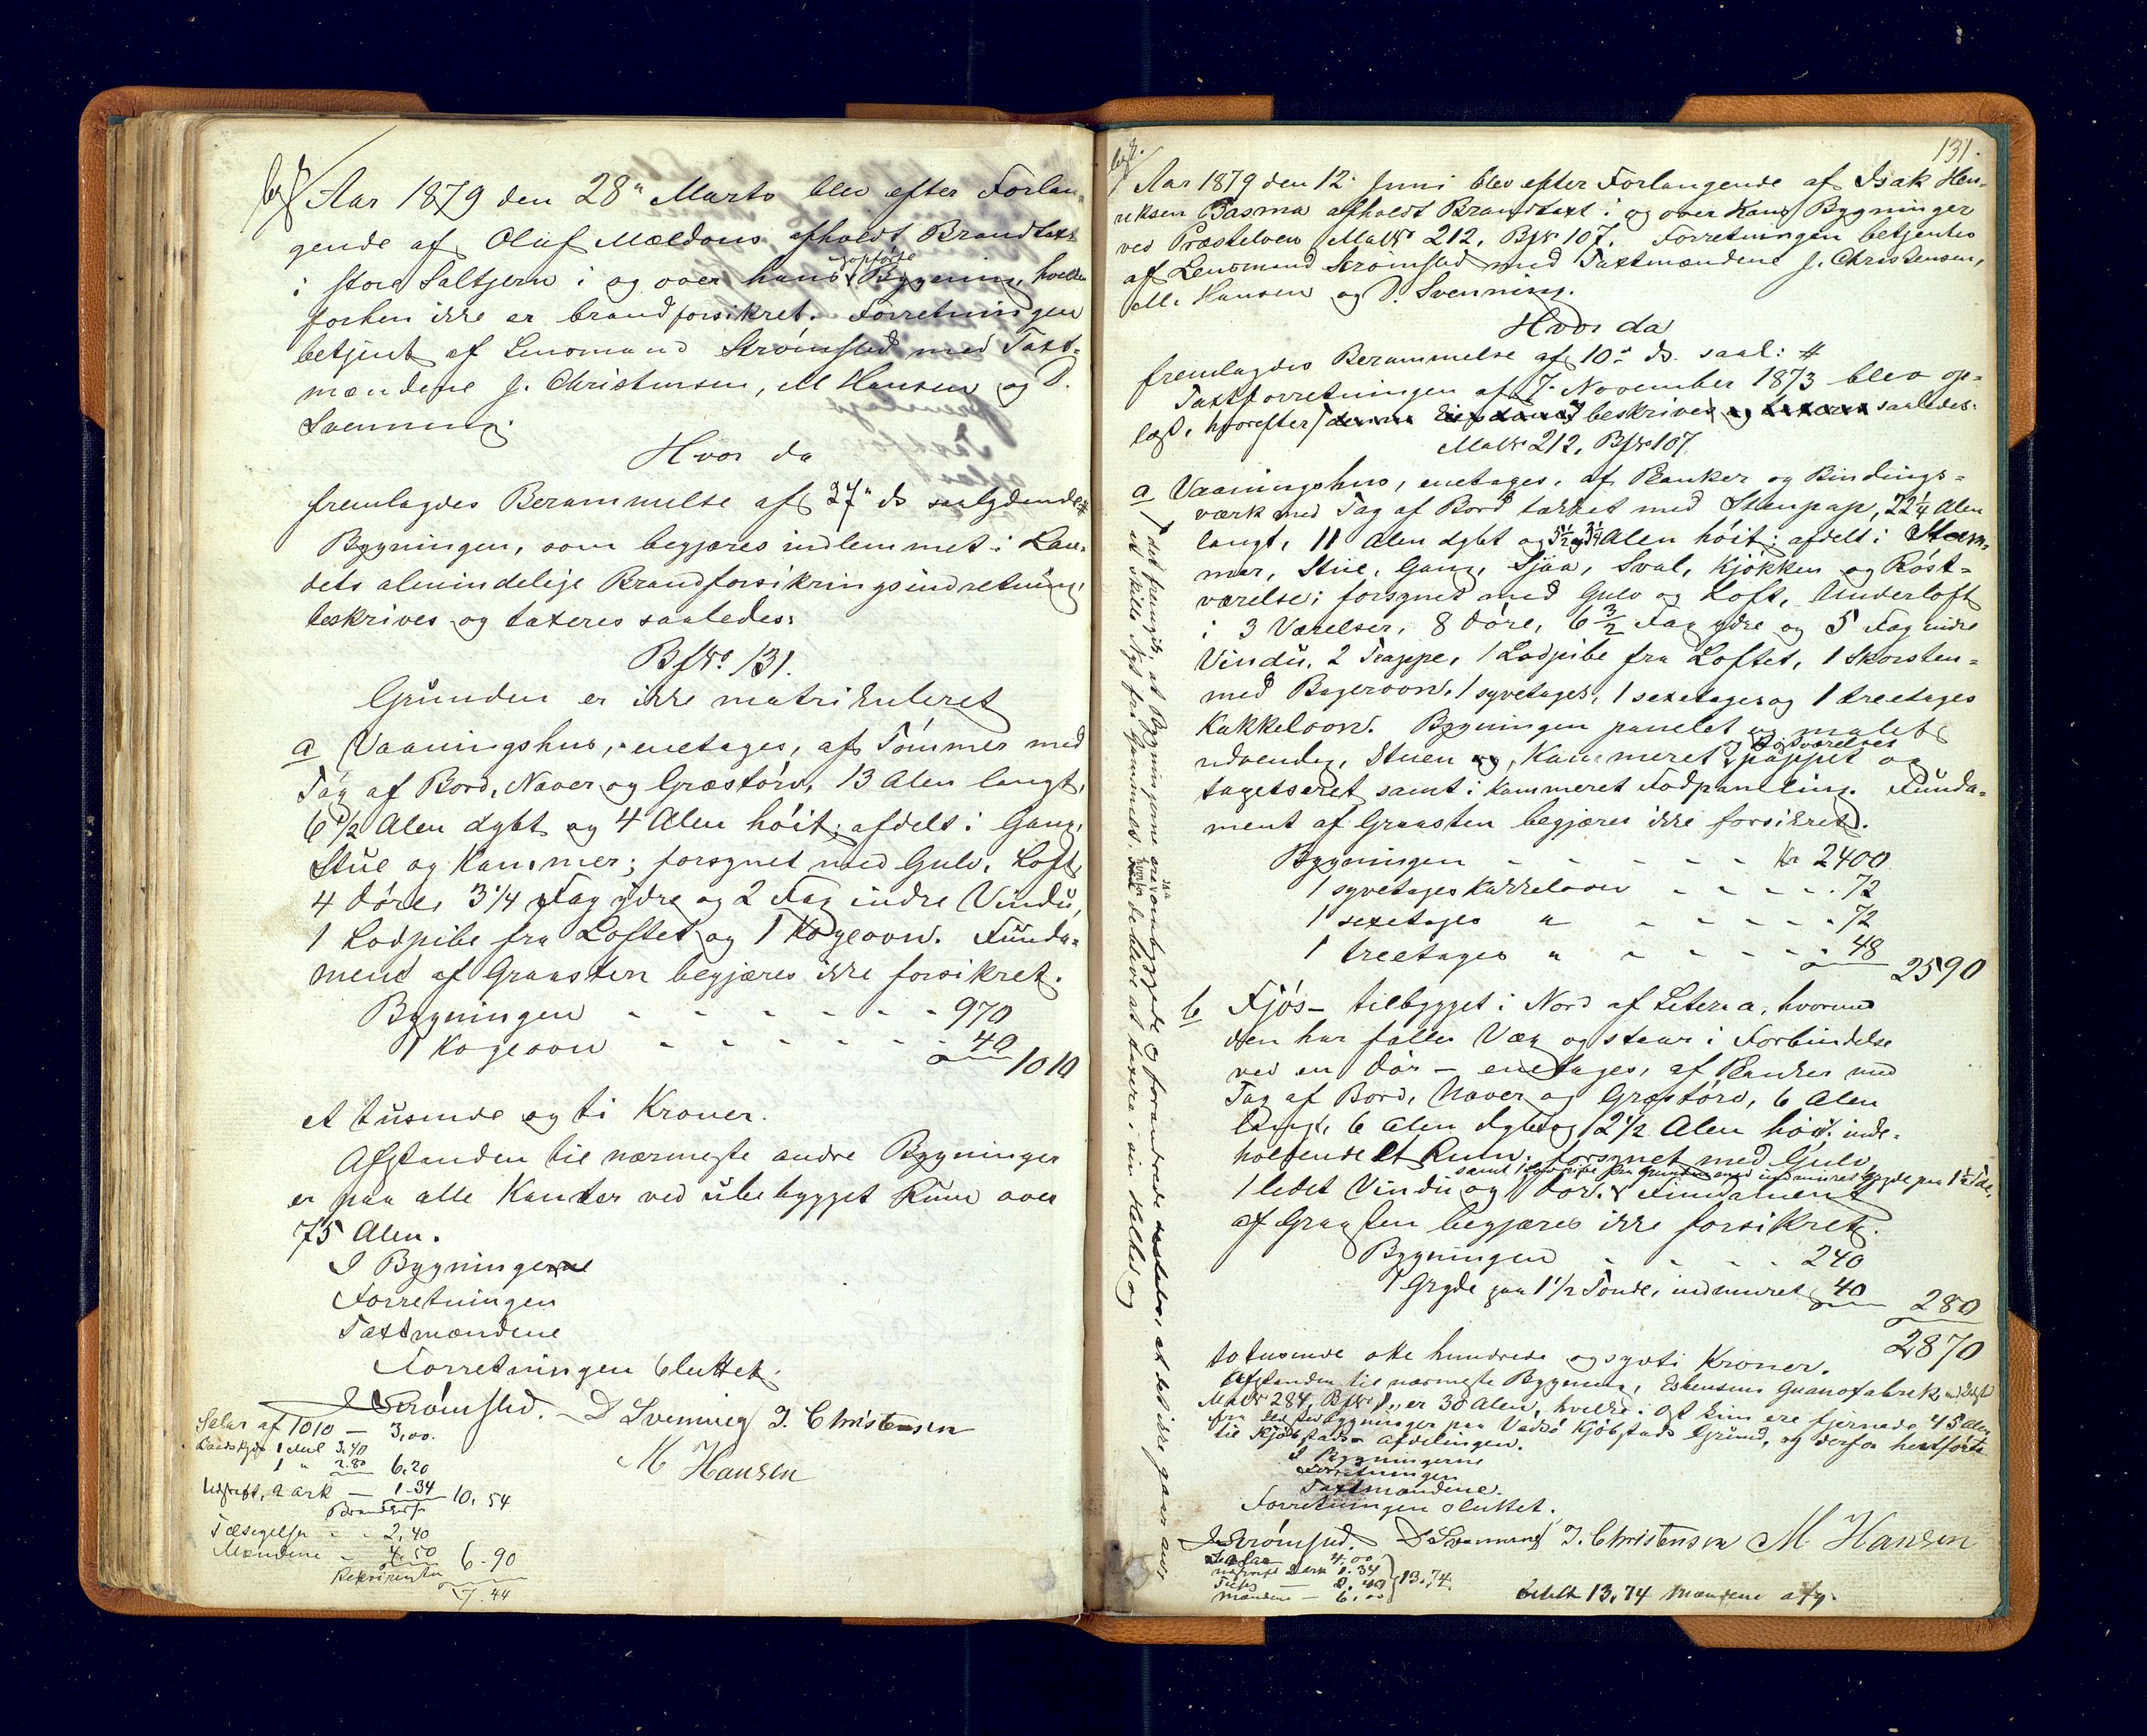 Aar 1879 den 28" Marts blev efter Forlan-
gende af Oluf Mældous afholdt Brandtaxt
i store Saltjern i og over hans nyopførte Bygning, hvilken
forhen ikke er brandforsikret. Forretningen
betjent af Lensmand Strømsted med Taxt-
mændene J. Christensen, M Hansen og D.
Svenning.
Hvor da
fremlagdes Berammelse af 27" ds saalydende #
Bygningen, som begjæres indlemmet i Lan-
dets almindelige Brandforsikringsindretning,
beskrives og taxeres saaledes:
Bf No 131.
Grunden er ikke matrikuleret
a Vaaningshus, enetages, af Tømmer med
Tag af Bord, Næver og Græstørv, 13 Alen langt,
6 1/2 Alen dybt og 4 Alen høit; afdelt i Gang,
Stue og Kammer; forsynet med Gulv, Loft,
4 Døre, 3 1/4 Fag ydre og 2 Fag indre Vindu,
1 Lodpibe fra Loftet og 1 Kogeovn. Funda-
ment af Graasten begjæres ikke forsikret.
Bygningen - - - - - - 970
1 Kogeovn - - - - - - 40
1010
et tusinde og ti Kroner.
Afstanden til nærmeste andre Bygninger
er paa alle Kanter ved ubebygget Rum over
75 Alen.
I Bygningen
Forretningen
Taxtmændene
Forretningen sluttet.
Strømsted. D Svenning J. Christensen
M Hansen
Salær af 1010 — 3,00.
1 Mil 3.40
1 " 2.80 6.20
Udskrift, 2 ark — 1-34 10,54
Tilsigelse - - 2,40
Mændene - 4.50 6-90
Rekvirenten
17.44
131.
Aar 1879 den 12' Juni blev efter Forlangende af Isak Hen-
riksen Basma afholdt Brandtaxt i og over hans Bygninger
ved Præstelven Mat No 212, Bf No 107. Forretningen betjentes
af Lensmand Strømsted med Taxtmændene J. Christensen,
M. Hansen og D. Svenning.
Hvor da
fremlagdes Berammelse af 10" ds. saal: #
Taxtforretningen af 7. November 1873 blev op-
læst, hvorefter denne Eiendom beskrives og taxeres saaledes:
Mat No 212, Bf No 107.
a Vaaningshus, enetages, af Planker og Bindings-
værk med Tag af Bord tækket med Stenpap, 22 1/4 Alen
langt, 11 Alen dybt og Alen høit; afdelt i Kam-
mer, Stue, Gang, Sjaa, Sval, Kjøkken og Kost-
værelse; forsynet med Gulv og Loft, Underloft
i 3 Værelser, 8 Døre, 6 3/2 Fag ydre og 5 Fag indre
Vindu, 2 Trappe, 1 Lodpibe fra Loftet, 1 Skorsten-
med Bagerovn, 1 syvetages, 1 sexetages og 1 treetages
Kakkelovn. Bygningen panelet og malet
udvendig, Stuen og Kammeret og Kostværelset pappet og
tapetseret samt i Kammeret Fodpaneling. Funda-
ment af Graasten begjæres ikke forsikret.
Bygningen - - - - - Kr 2400
1 syvetages Kakkelovn - - - - 72
1 sexetages " - - - - 72
1 treetages " - - - - 48
2590
b Fjøs - tilbygget i Nord af Litera a, hvormed
den har fælles Væg og staar i Forbindelse
ved en Dør - enetages, af Planker med
Tag af Bord, Næver og Græstørv, 6 Alen
langt, 6 Alen dybt og 2 1/2 Alen høit; inde-
holdende et Rum; forsynet med Gulv
samt 1 Lodpibe fra Grunden med indmuret Gryde paa 1 1/2 Tde.
1 ledet Vindu og 1 Dør. Fundament
af Graasten begjæres ikke forsikret.
Bygningen - - - - 240
1 Gryde paa 1 1/2 Tønde, indmuret 40
280
2870
totusinde otte hundrede og sytti Kroner.
Afstanden til nærmeste Bygning, Esbensens Guanofabrik
Mat No 284, Bf No 1, er 30 Alen, hvilke i Øst kun ere fjernede 45 Alen
fra Bygninger paa Vadsø Kjøbstads Grund, og derfor henførte
til Kjøbstads Afdelingen.
I Bygningerne
Forretningen
Taxtmændene.
Forretningen sluttet.
Strømsted. D Svenning J. Christensen M. Hansen
4,00
Udskrift 2 ark 1.34
Tils — 2,40 13.74
Mændene — 6,00
betalt 13,74 Mændene afg.
det fremgik, at Bygningerne ere saa ombyggede og forandrede at det ikke gaar an,
at skille Nyt fra Gammelt, hvorfor de bleve at taxere i sin Helhed og